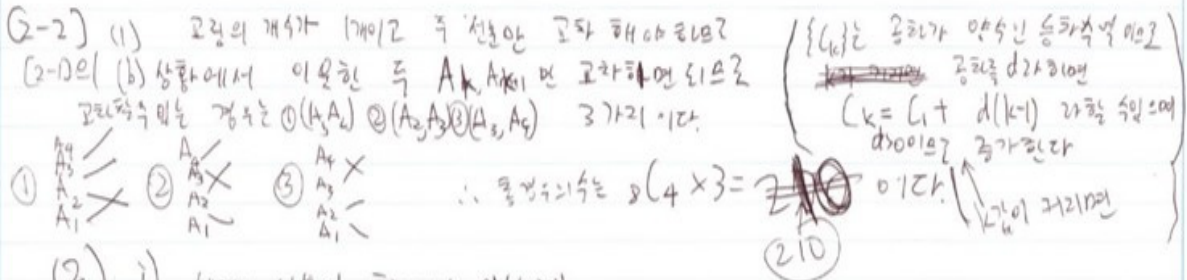 [2-2] (1) 교점의 개수가 1개이고 두 선분만 교차 해야 하므로
[2-1]의 (b) 상황에서 이웃한 두 A_k, A_k+1 만 교차하면 되므로
교차할 수 있는 경우는 ①(A_1, A_2) ②(A_2, A_3) ③(A_3, A_4) 3가지 이다.
① A_4 A_3 A_2 A_1 ② A_4 A_3 A_2 A_1 ③ A_4 A_3 A_2 A_1
∴ 총 경우의 수는 8C4 × 3 = 210 이다.
{C_k}는 공차가 양수인 등차수열 이므로
공차를 d라 하면
C_k = C_1 + d(k-1) 라 할 수 있으며
d>0이므로 증가한다
k값이 커지면
(2) i)